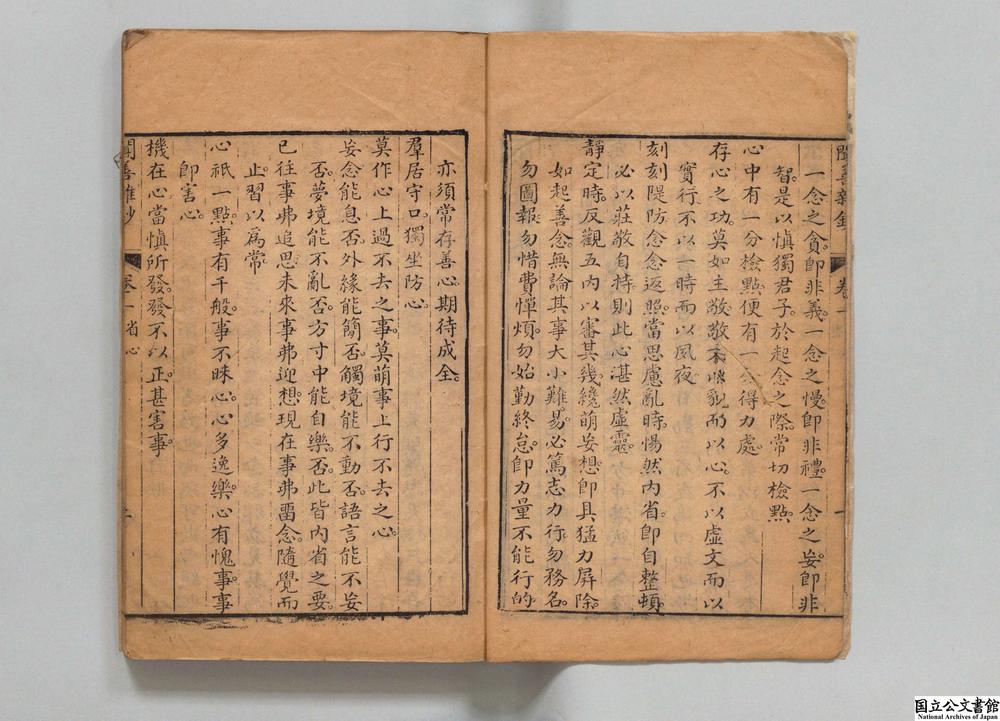 一念之貪。即非義。一念之慢。即非禮。一念之妄。即非
智。是以愼獨君子。於起念之際。常切檢點。
心中有一分檢點。便有一分得力處。
存心之功。莫如主敬。敬不以貌。而以心。不以虛文。而以
實行。不以一時。而以夙夜。
刻刻隄防。念念返照。當思慮亂時。惕然內省。即自整頓。
必以莊敬自持。則此心湛然虛靈。
靜定時。反觀五內。以審其幾。纔萌妄想。即具猛力屏除。
如起善念。無論其事大小難易。必篤志力行。勿務名。
勿圖報。勿惜費憚煩。勿始勤終怠。即力量不能行的。
亦須常存善心。期待成全。
羣居守口。獨坐防心。
莫作心上過不去之事。莫萌事上行不去之心。
妄念能息否。外緣能簡否。觸境能不動否。語言能不妄
否。夢境能不亂否。方寸中能自樂否。此皆內省之要。
已往事弗追思。未來事弗迎想。現在事弗畱念。隨覺而
止。習以爲常。
心祇一點。事有千般。事不昧心。心多逸樂。心有愧事。事
即害心。
機在心。當愼所發。發不以正。甚害事。
卷一 省心
国立公文書館
National Archives of Japan